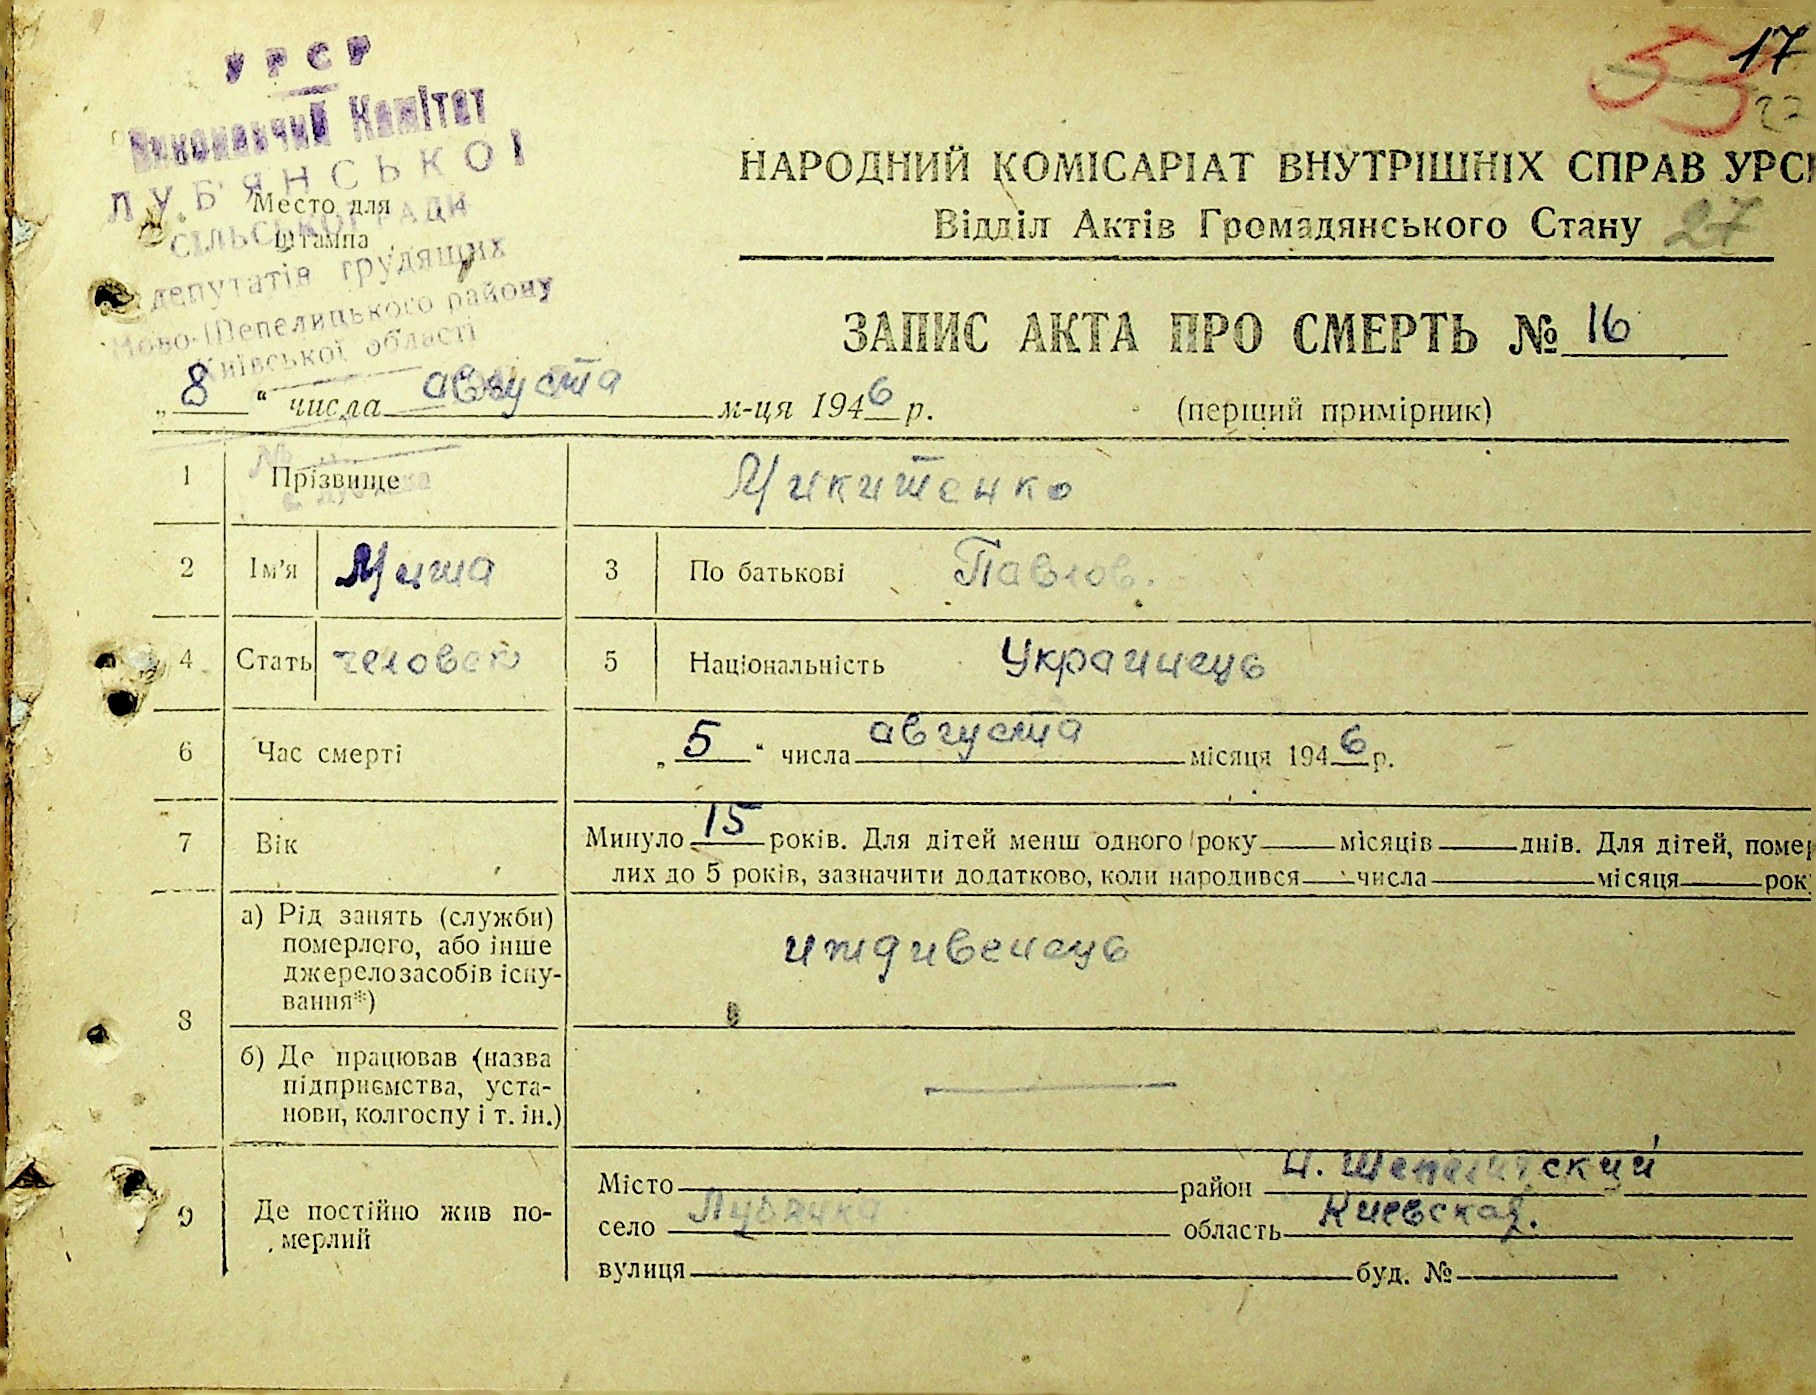 УРСР
Виконавчий Комітет
ЛУБ'ЯНСЬКОЇ
СІЛЬСЬКОЇ РАДИ
депутатів трудящих
Ново-Шепелицького району
Київської області
Место для
штампа
17
53
27
НАРОДНИЙ КОМІСАРІАТ ВНУТРІШНІХ СПРАВ УРСР
Відділ Актів Громадянського Стану 27
ЗАПИС АКТА ПРО СМЕРТЬ № 16
„8“ числа августа м-ця 1946 р. (перший примірник)
1 Прізвище Микитенко
2 Ім'я Миша 3 По батькові Павлов.
4 Стать человек 5 Національність Украинець
6 Час смерті „5“ числа августа місяця 1946 р.
7 Вік Минуло 15 років. Для дітей менш одного року місяців днів. Для дітей, помер
лих до 5 років, зазначити додатково, коли народився числа місяця рок
8 а) Рід занять (служби)
померлого, або інше
джерело засобів існу-
вання*)
иждивенець
б) Де працював (назва
підприємства, уста-
нови, колгоспу і т. ін.)
9 Де постійно жив по-
мерлий
Місто район Н. Шепелитский
село Лубянка область Киевская.
вулиця буд. №